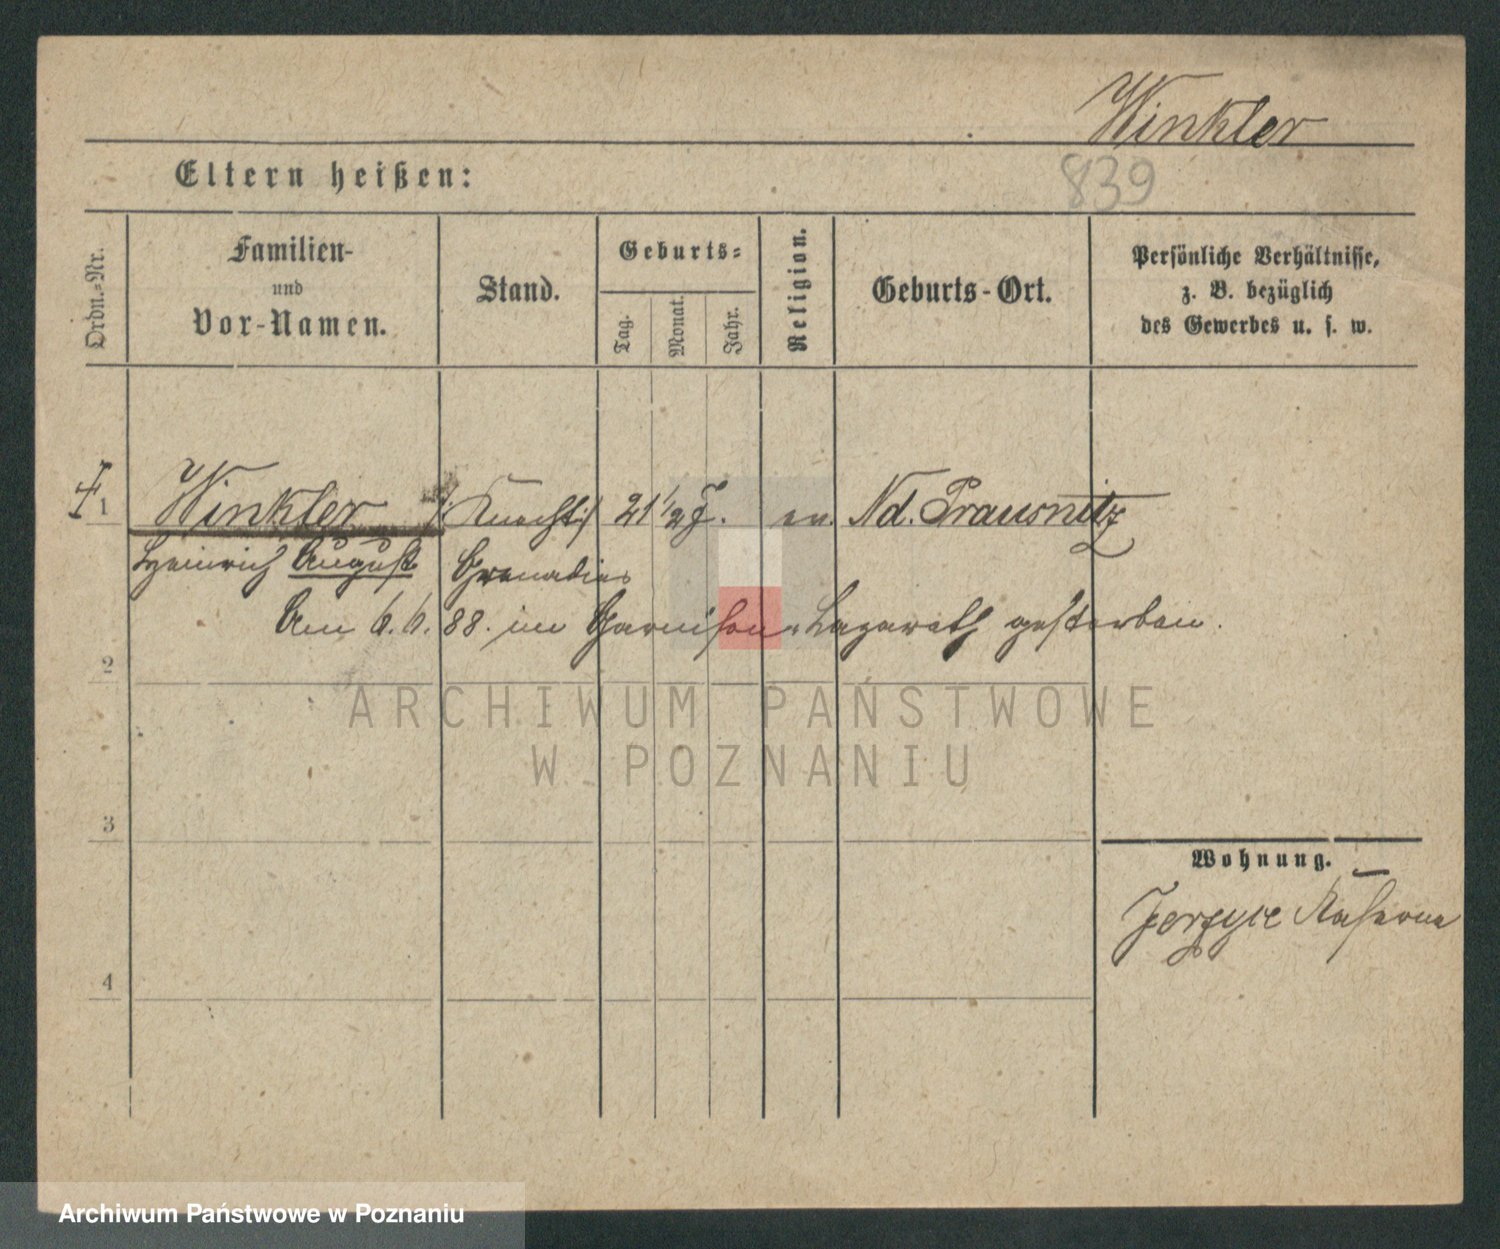 Winkler
839
Eltern heißen:
Ordn.-Nr.
Familien-
und
Vor-Namen.
Stand.
Geburts-
Tag.
Monat.
Jahr.
Religion.
Geburts-Ort.
Persönliche Verhältnisse,
z. B. bezüglich
des Gewerbes u. s. w.
1 Winkler /:Knecht:/ 21 1/2 J. ev. Nd. Prausnitz
Heinrich August Grenadier
Am 6.6.88. im Garnison-Lazareth gestorben.
2
3
4
Wohnung.
Jerzyce Kaserne
ARCHIWUM PAŃSTWOWE
W POZNANIU
Archiwum Państwowe w Poznaniu